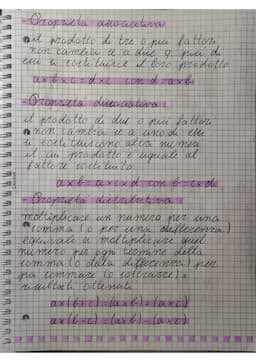 - Proprietà associativa
il prodotto di tre o più fattori
non cambia se a due o più di
essi si sostituisce il loro prodotto
a×b×c=d×c con d=a×b
- Proprietà dissociativa:
il prodotto di due o più fattori
non cambia se a uno di essi
si sostituiscono altri numeri
il cui prodotto è uguale al
fattore sostituito
a×b=a×c×d con b=c×d
- Proprietà distributiva:
moltiplicare un numero per una
somma (o per una differenza)
equivale a moltiplicare quel
numero per ogni termine della
somma (o della differenza) per
poi sommare (o sottrarre) i
risultati ottenuti
a×(b+c)=(a×b)+(a×c)
a×(b-c)=(a×b)-(a×c)